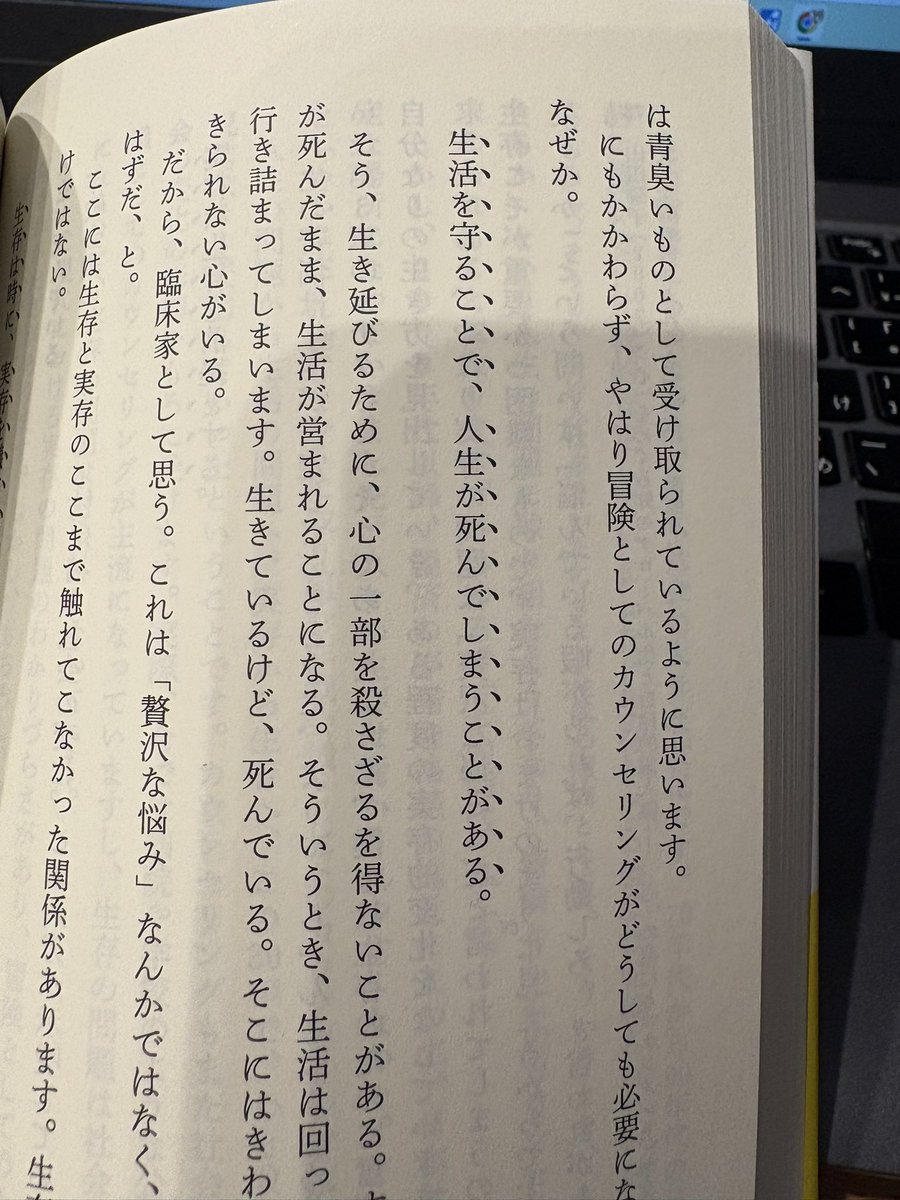 は青臭いものとして受け取られているように思います。
にもかかわらず、やはり冒険としてのカウンセリングがどうしても必要にな
なぜか。
生活を守ることで、人生が死んでしまうことがある。
そう、生き延びるために、心の一部を殺さざるを得ないことがある。
が死んだまま、生活が営まれることになる。そういうとき、生活は回っ
行き詰まってしまいます。生きているけど、死んでいる。そこにはきわ
きられない心がいる。
だから、臨床家として思う。これは「贅沢な悩み」なんかではなく、
はずだ、と。
ここには生存と実存のここまで触れてこなかった関係があります。生
けではない。
生存は時に、実存を